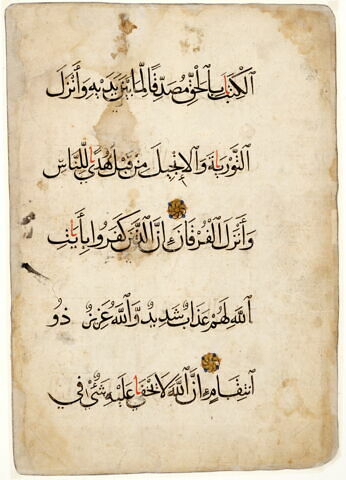 الكتب بالحق مصدقا لما بين يديه وأنزل
التورية والانجيل من قبل هدى للناس
وأنزل الفرقان ان الذين كفروا بأيت
الله لهم عذاب شديد والله عزيز ذو
انتقام ان الله لا يخفى عليه شىء في